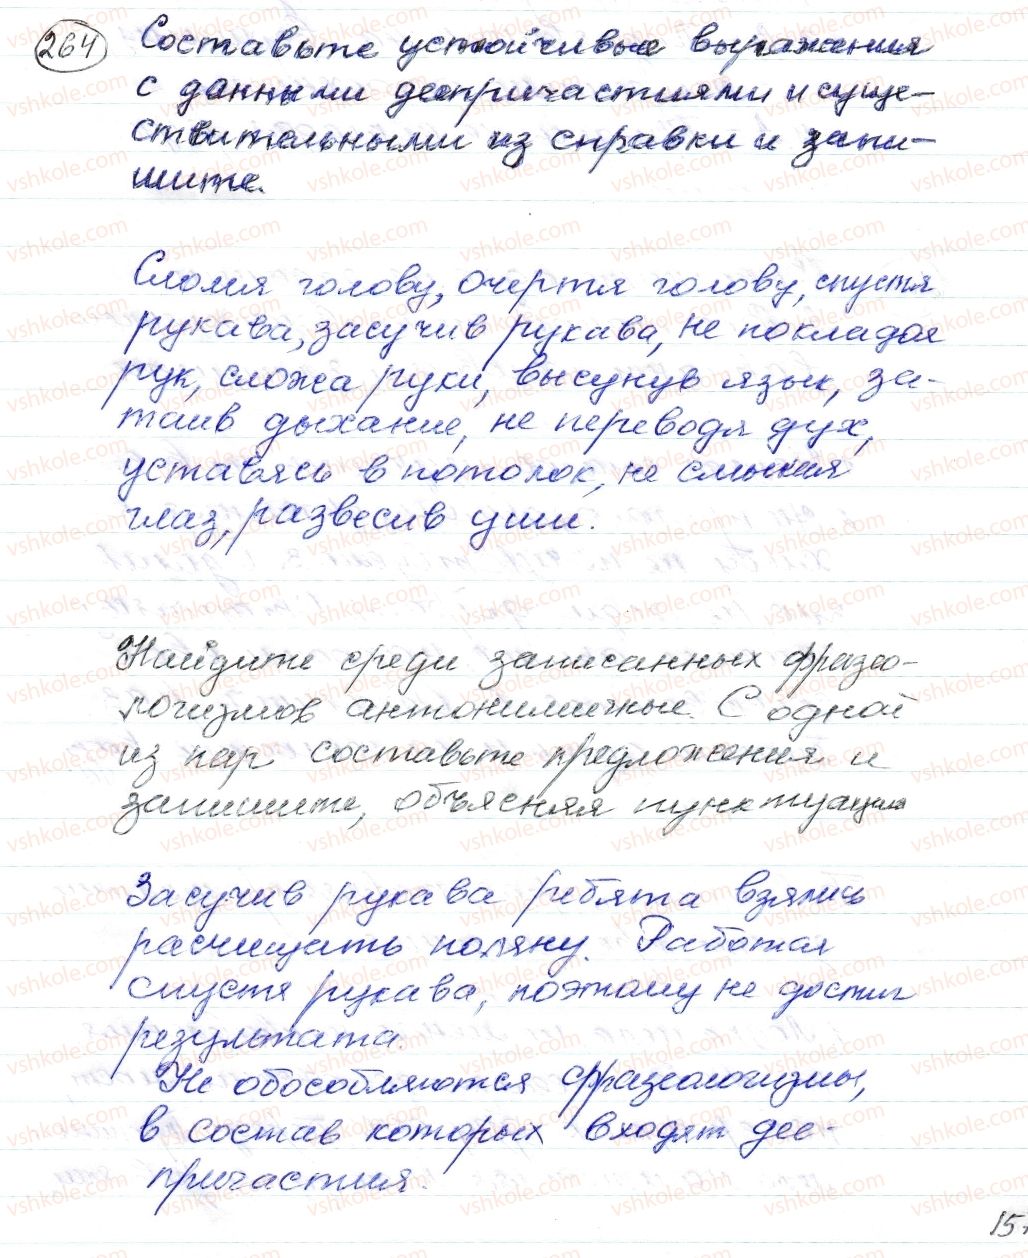 264 Составьте устойчивые выражения
с данными деепричастиями и суще-
ствительными из справки и запи-
шите.
Сломя голову, очертя голову, спустя
рукава, засучив рукава, не покладая
рук, сложа руки, высунув язык, за-
таив дыхание, не переводя дух,
уставясь в потолок, не смыкая
глаз, развесив уши.
Найдите среди записанных фразео-
логизмов антонимичные. С одной
из пар составьте предложения и
запишите, объясняя пунктуацию
Засучив рукава ребята взялись
расчищать поляну. Работал
спустя рукава, поэтому не достиг
результата.
Не обособляются фразеологизмы,
в состав которых входят дее-
причастия.
15